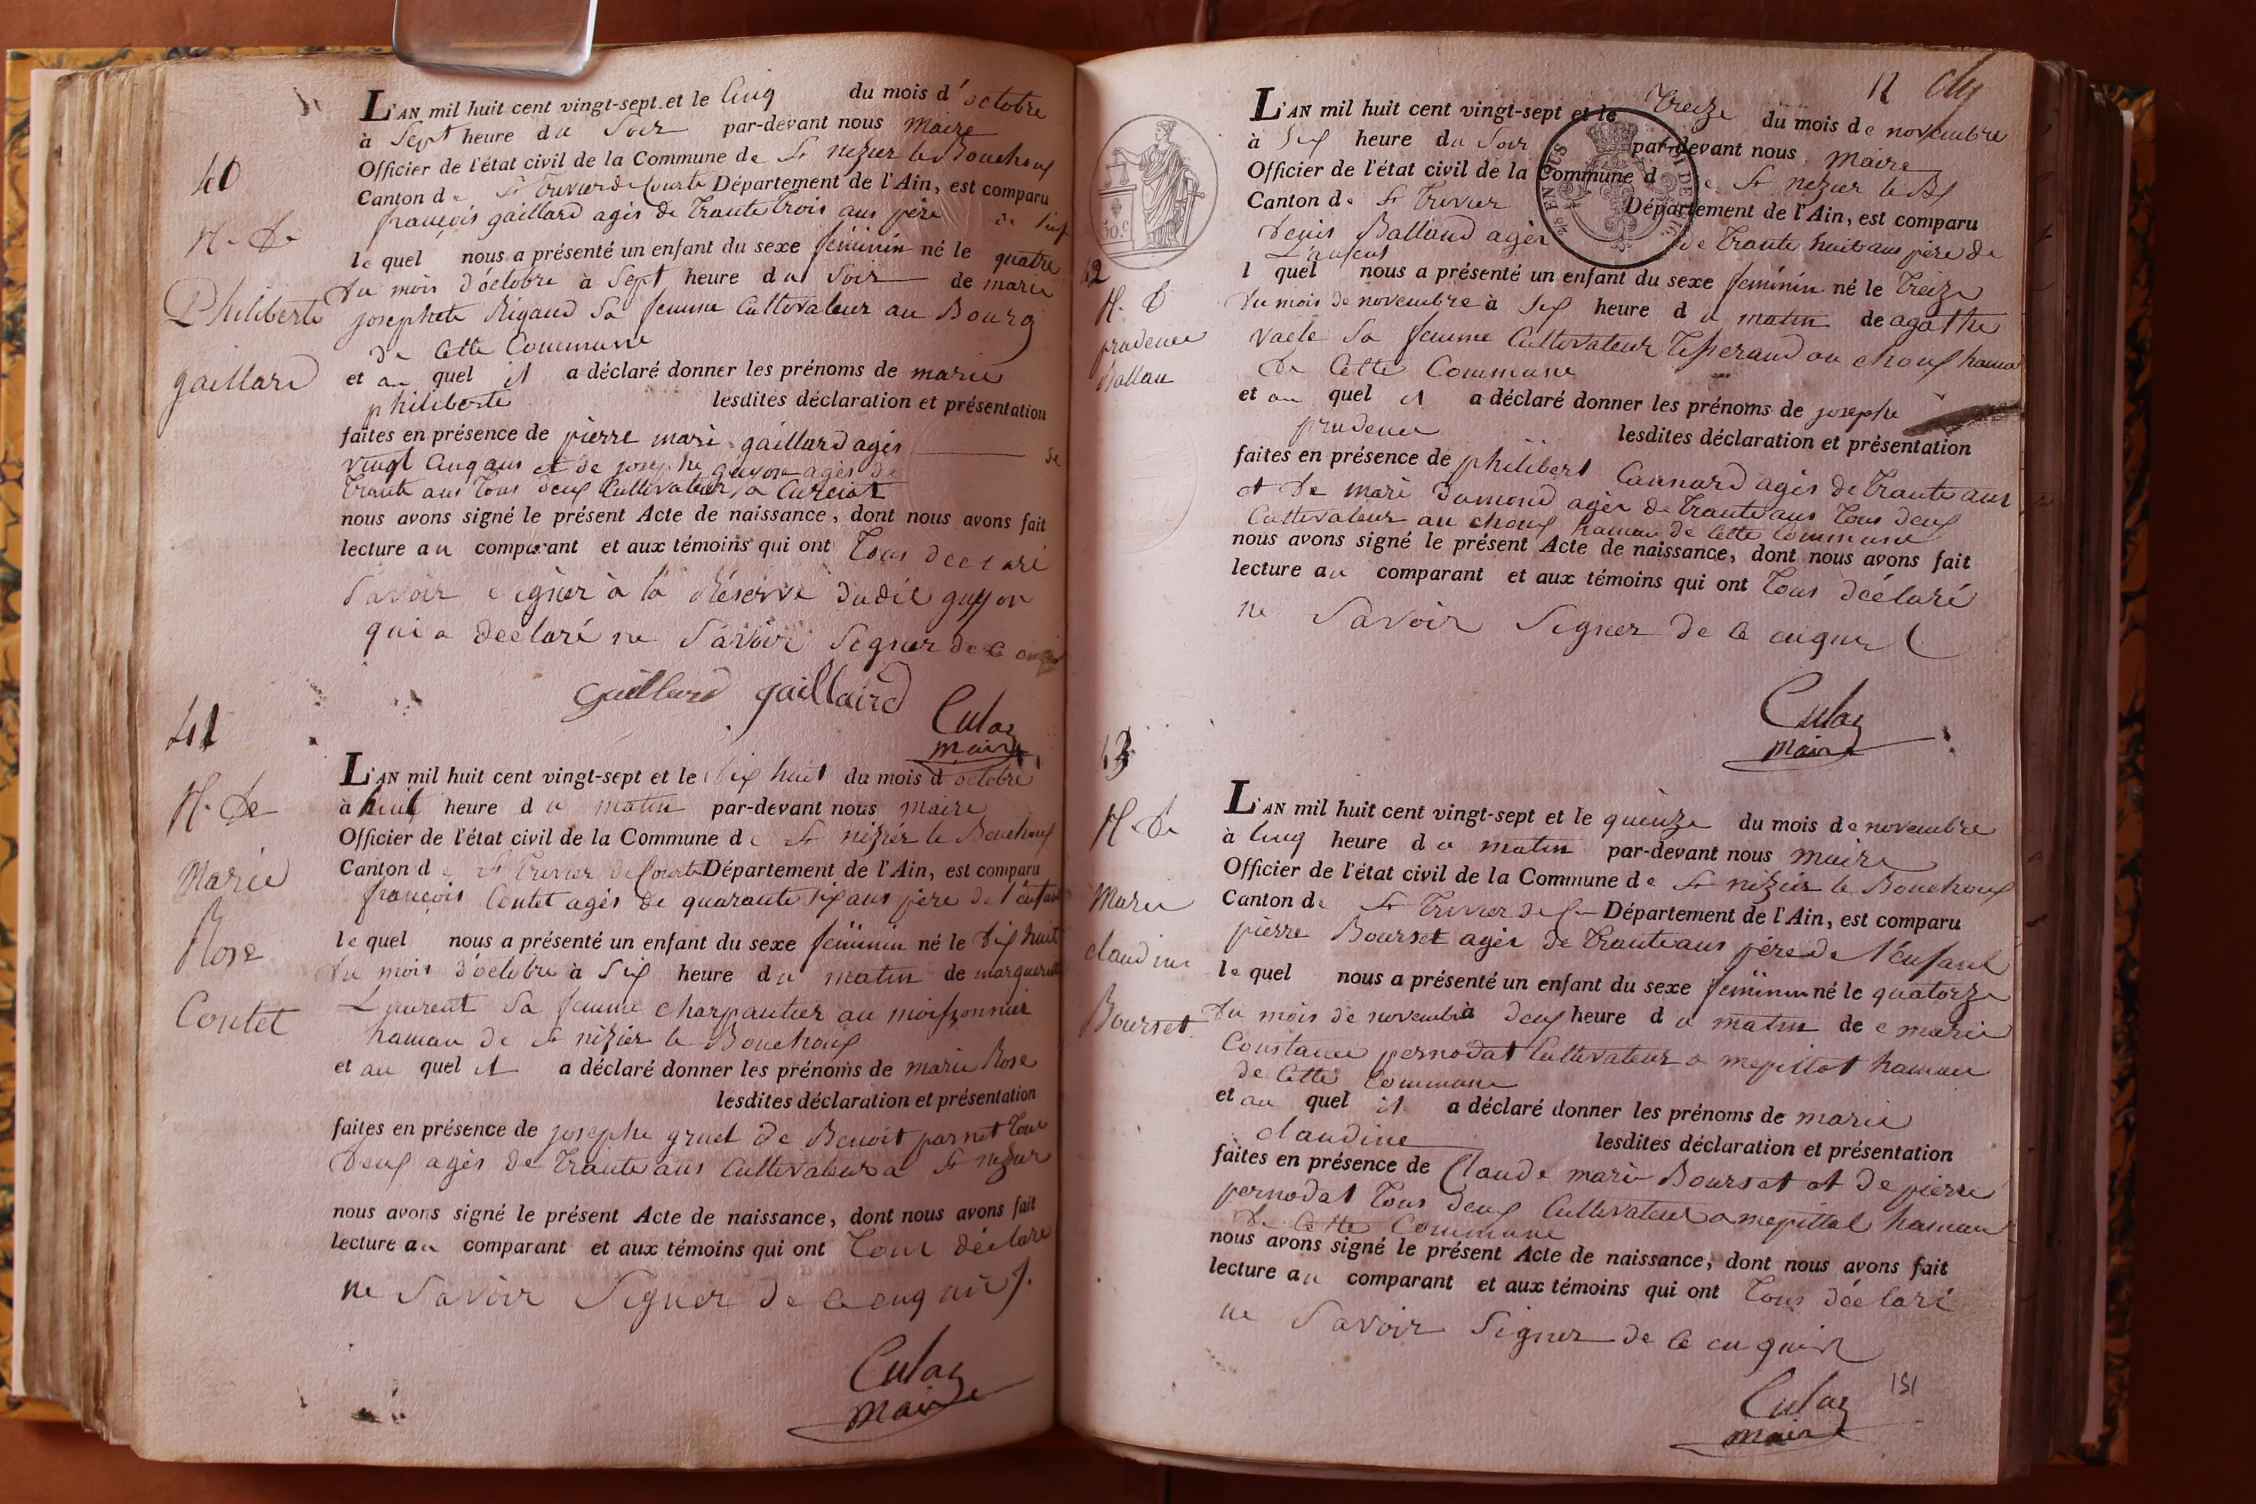 40
N. de
Philiberte
gaillard
L'AN mil huit cent vingt-sept et le Cinq du mois d'octobre
à Sept heure du Soir par-devant nous maire
Officier de l'état civil de la Commune de St nizier le Bouchoux
Canton de St Trivier de Courte Département de l'Ain, est comparu
françois gaillard agés de trante trois ans père de l'enf
le quel nous a présenté un enfant du sexe féminin né le quatre
du mois d'octobre à Sept heure du Soir de marie
josephete Rigaud Sa femme Cultivateur au Bourg
de Cette Commune
et au quel il a déclaré donner les prénoms de marie
philiberte lesdites déclaration et présentation
faites en présence de pierre marie gaillard agés de
vingt Cinq ans et de josephe guyon agés de
trante ans tous deux Cultivateur a Curciat
nous avons signé le présent Acte de naissance, dont nous avons fait
lecture au comparant et aux témoins qui ont Tous declaré
Savoir signer à la Réserve dudit guyon
qui a declaré ne Savoir Signer de ce
Gaillard gaillaird
Culaz
maire
41
N. de
Marie
Rose
Contet
L'AN mil huit cent vingt-sept et le dix huit du mois d'octobre
à huit heure du matin par-devant nous maire
Officier de l'état civil de la Commune de St nizier le Bouchoux
Canton de St Trivier de Courte Département de l'Ain, est comparu
françois Contet agés de quarante six ans père de l'enfant
le quel nous a présenté un enfant du sexe féminin né le dix huit
du mois d'octobre à Six heure du matin de marguerite
Laurent Sa femme charpantier au
hamau de St nizier le Bouchoux
et au quel il a déclaré donner les prénoms de marie Rose
lesdites déclaration et présentation
faites en présence de josephe gruel de Benoit parnet tous
deux agés de trante ans Cultivateur a St nizier
nous avons signé le présent Acte de naissance, dont nous avons fait
lecture au comparant et aux témoins qui ont Tous déclaré
ne Savoir Signer de ce enquis
Culaz
maire
11
42
N. d
prudence
Ballau
30 c
L'AN mil huit cent vingt-sept et le treize du mois de novembre
à Six heure du Soir par-devant nous maire
Officier de l'état civil de la Commune de St nizier le Bx
Canton de St Trivier Département de l'Ain, est comparu
denis Balland agés de trante huit ans père de
L'enfent
l quel nous a présenté un enfant du sexe féminin né le treize
du mois de novembre à Six heure du matin de agathe
vaele Sa femme Cultivateur Tisserand au choux hamau
de Cette Commune
et au quel il a déclaré donner les prénoms de josephe
prudence lesdites déclaration et présentation
faites en présence de philibert Cannard agés de trante ans
et de marie damond agés de trante ans tous deux
Cultivateur au choux hamau de Cette Commune
nous avons signé le présent Acte de naissance, dont nous avons fait
lecture au comparant et aux témoins qui ont Tous déclaré
ne Savoir Signer de ce
Culaz
maire
43
N. de
Marie
claudine
Bourset
L'AN mil huit cent vingt-sept et le quinze du mois de novembre
à Cinq heure du matin par-devant nous maire
Officier de l'état civil de la Commune de St nizier le Bouchoux
Canton de St Trivier de C Département de l'Ain, est comparu
pierre Bourset agés de trante ans père de l'enfant
le quel nous a présenté un enfant du sexe féminin né le quatorze
du mois de novembre à deux heure du matin de marie
Constance pernodat Cultivateur a mepillat hamau
de Cette Commune
et au quel il a déclaré donner les prénoms de marie
claudine lesdites déclaration et présentation
faites en présence de Claude marie Bourset et de pierre
pernodat tous deux Cultivateur a mepillat hamau
de Cette Commune
nous avons signé le présent Acte de naissance, dont nous avons fait
lecture au comparant et aux témoins qui ont Tous déclaré
ne Savoir Signer de ce enquis
Culaz
maire
151